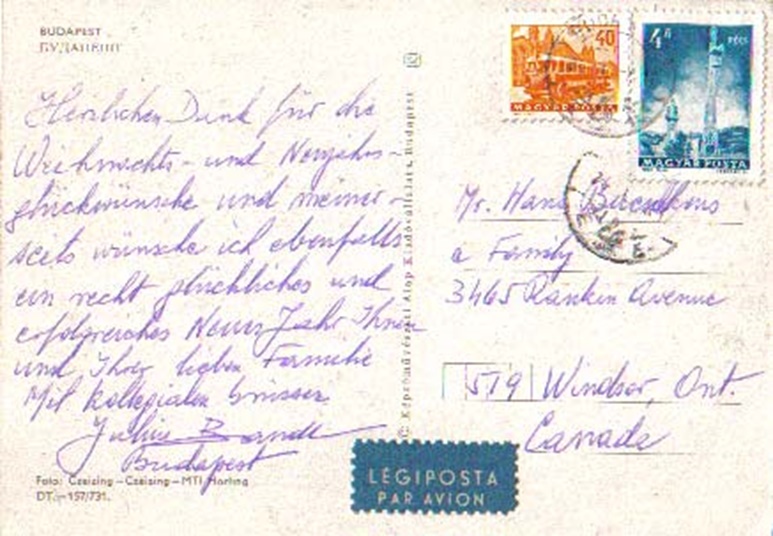 BUDAPEST
БУДАПЕШТ
Herzlichen Dank für die
Weihnachts- und Neujahrs-
glückwünsche und meiner-
seits wünsche ich ebenfalls
ein recht glückliches und
erfolgreiches Neues Jahr Ihnen
und Ihrer lieben Familie
Mit kollegialen Grüssen
Julius
Budapest
Foto: Czeizing-Czeizing-MTI Horling
DT.-157/731.
Képzőművészeti Alap Kiadóvállalata, Budapest
40
MAGYAR POSTA
4 Ft
PÉCS
MAGYAR POSTA
Mr. Hans
a Family
3465 Rankin Avenue
519 Windsor, Ont.
Canada
LÉGIPOSTA
PAR AVION